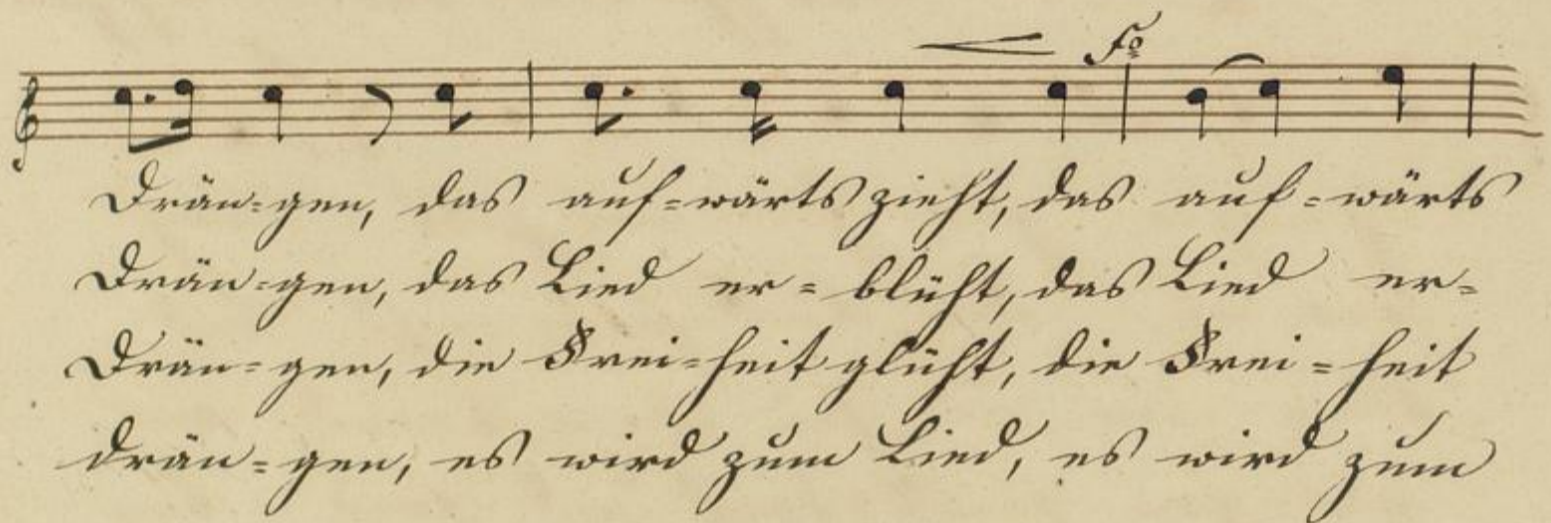 fo
Drän-gen, das auf-wärts zieht, das auf-wärts
Drän-gen, das Lied er-blüht, das Lied er-
Drän-gen, die Frei-heit glüht, die Frei-heit
drän-gen, es wird zum Lied, es wird zum